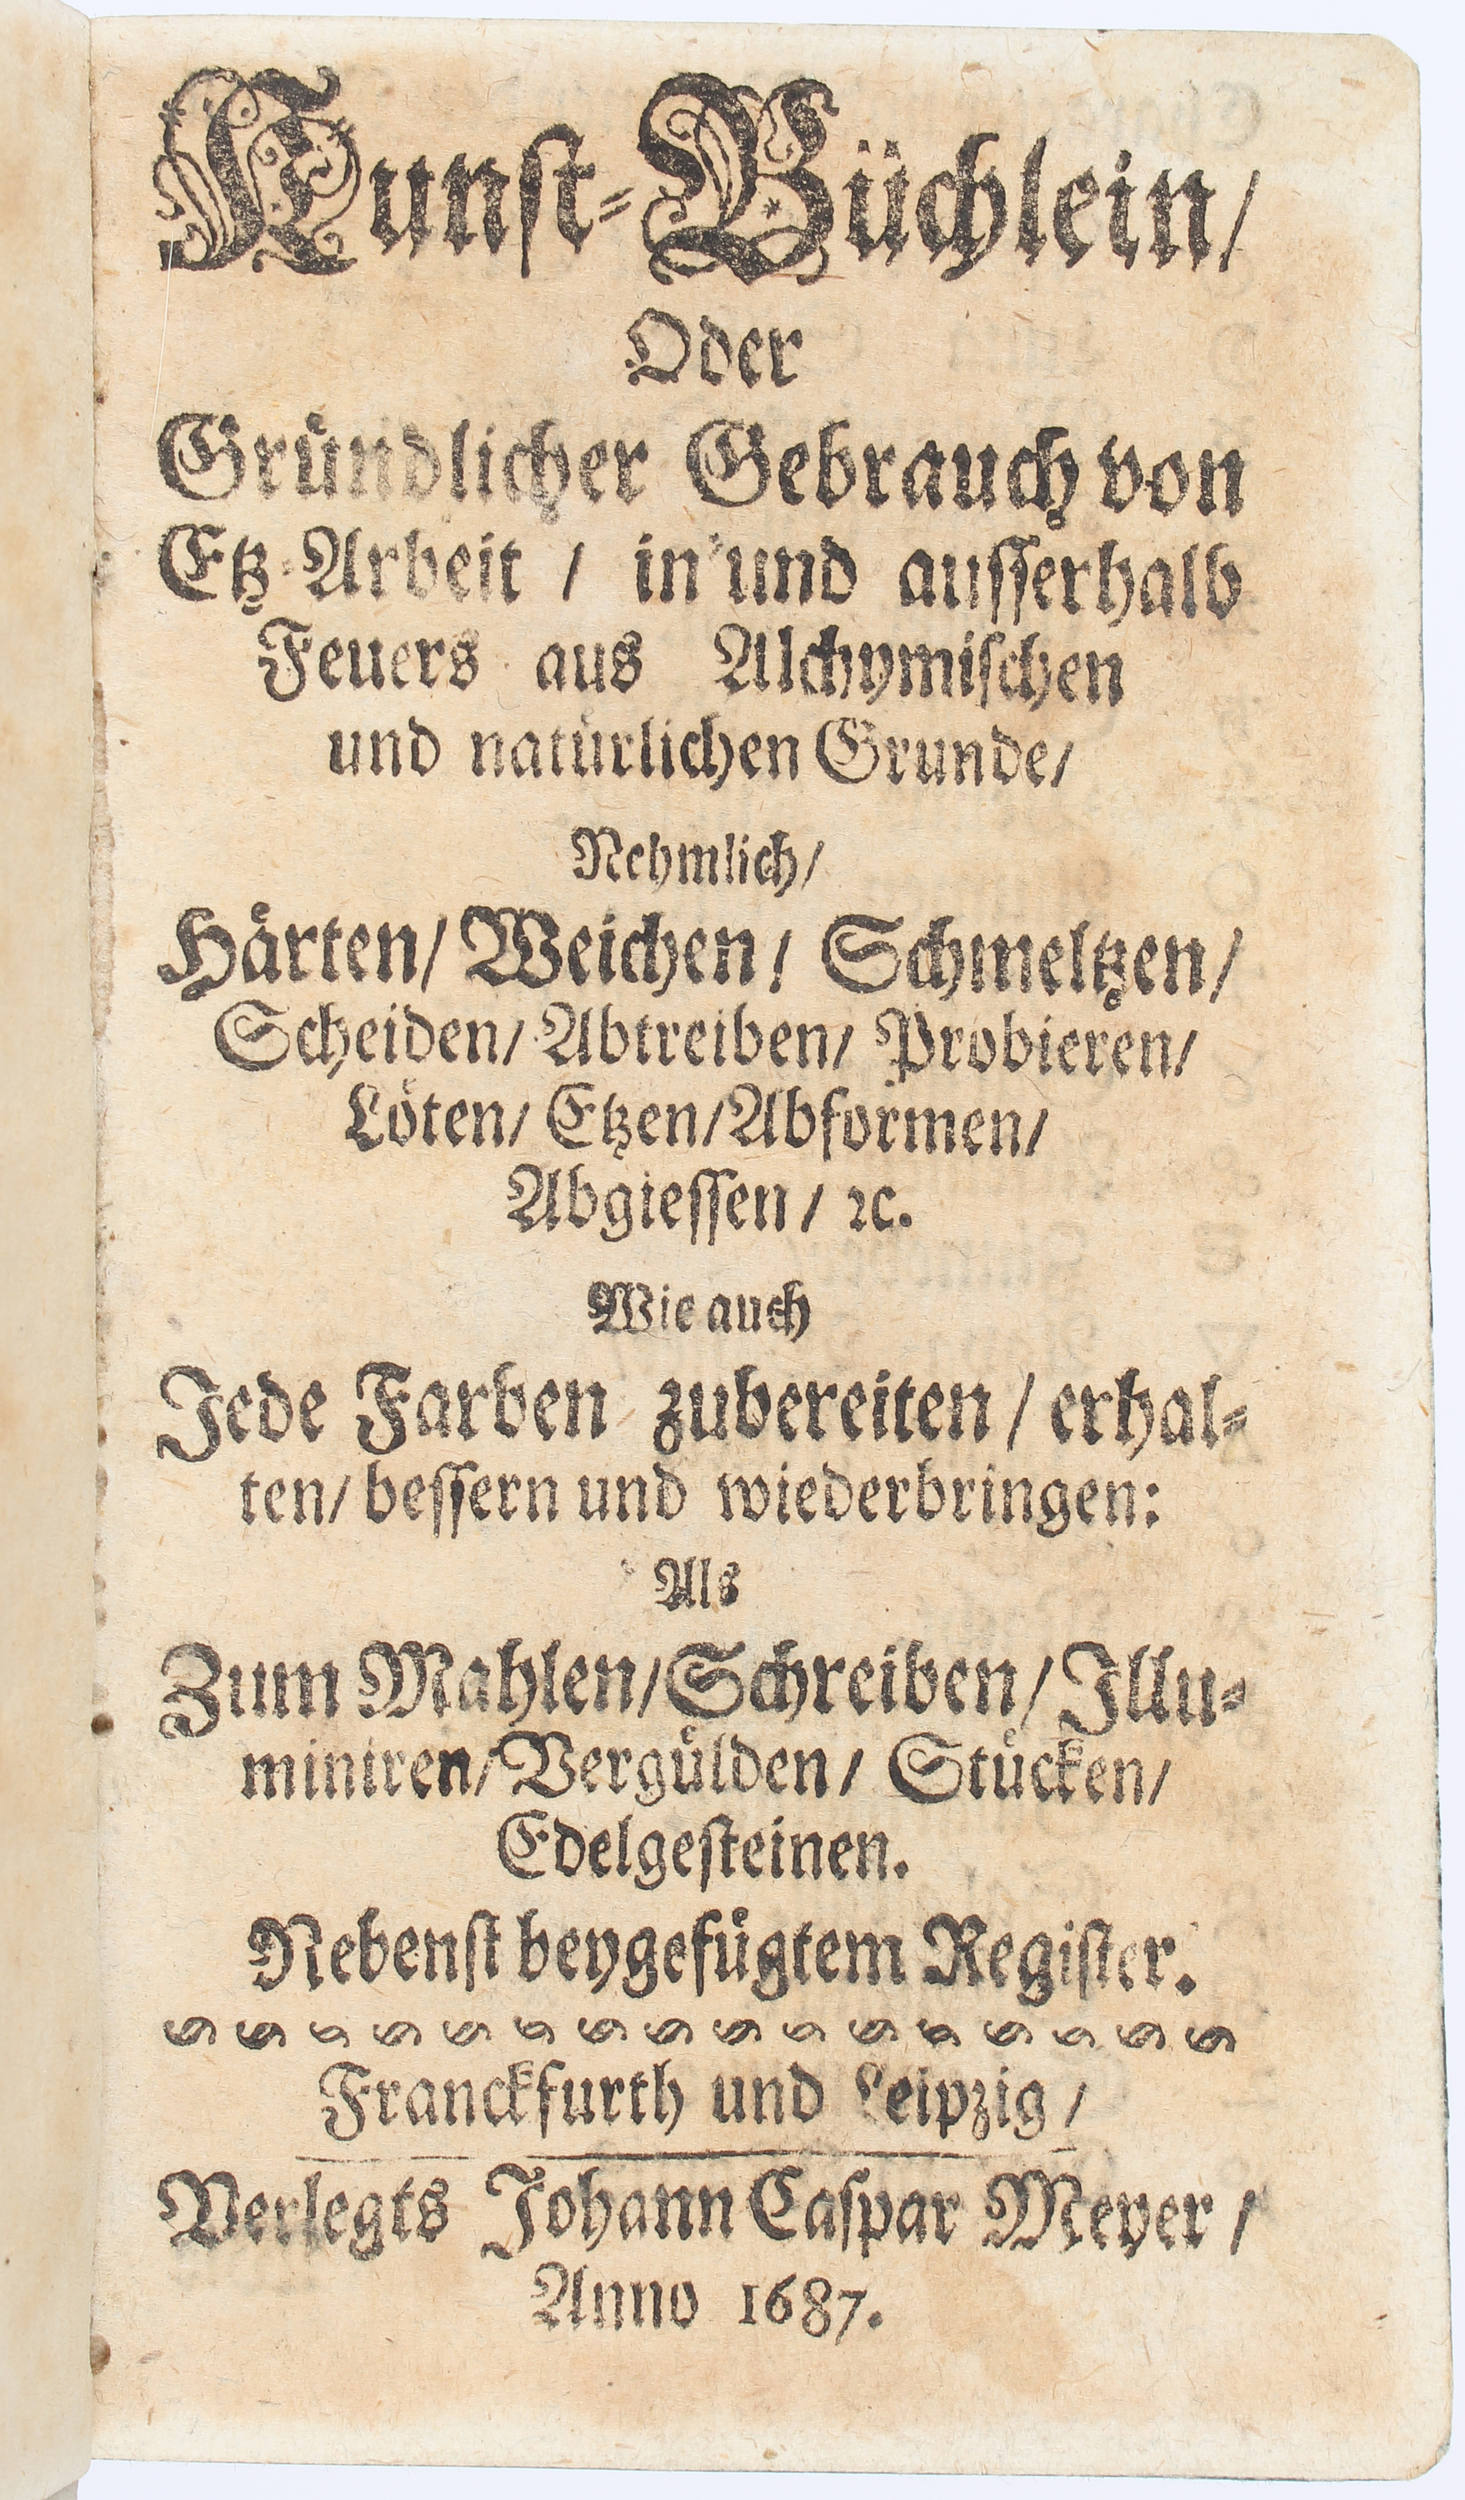 Kunſt-Büchlein/
Oder
Gründlicher Gebrauch von
Etz-Arbeit / in und auſſerhalb
Feuers aus Alchymiſchen
und natürlichen Grunde/
Nehmlich/
Härten/ Weichen/ Schmeltzen/
Scheiden/ Abtreiben/ Probieren/
Löten/ Etzen/ Abformen/
Abgieſſen / ꝛc.
Wie auch
Jede Farben zubereiten / erhal-
ten/ beſſern und wiederbringen:
Als
Zum Mahlen/ Schreiben/ Illu-
miniren/ Vergülden/ Stücken/
Edelgeſteinen.
Nebenſt beygefügtem Regiſter.
Franckfurth und Leipzig /
Verlegts Johann Caſpar Meyer /
Anno 1687.